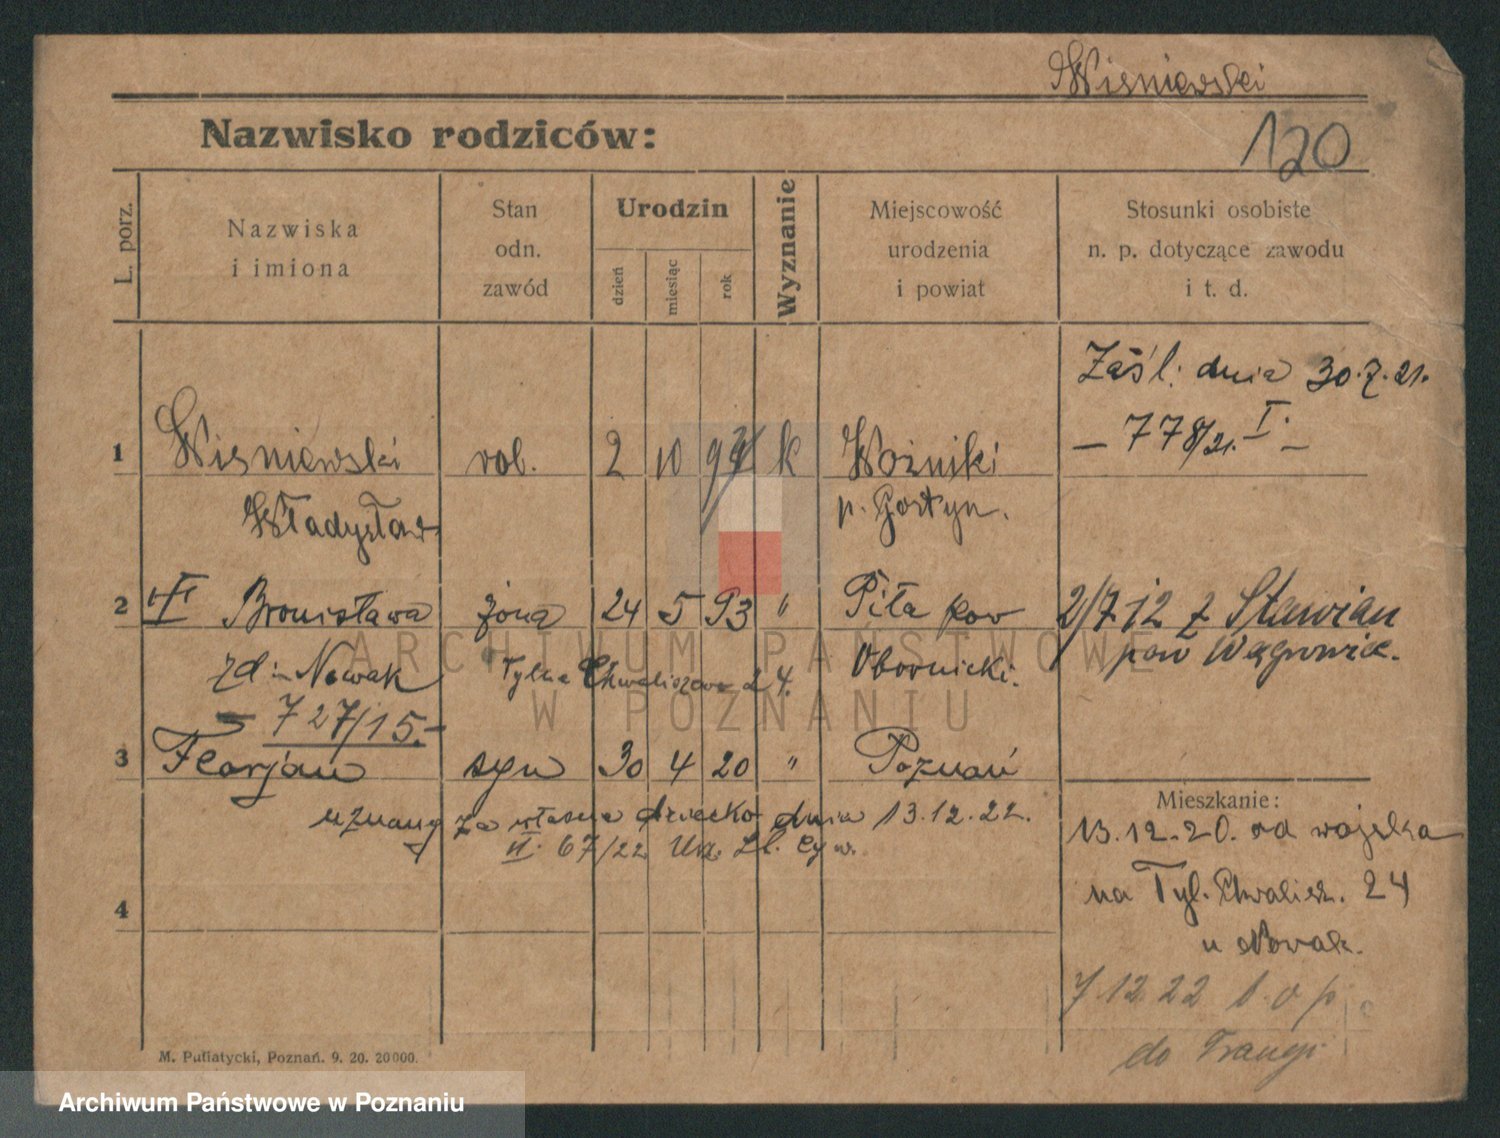 Wiśniewski
Nazwisko rodziców:
120
L. porz.
Nazwiska
i imiona
Stan
odn.
zawód
Urodzin
dzień
miesiąc
rok
Wyznanie
Miejscowość
urodzenia
i powiat
Stosunki osobiste
n. p. dotyczące zawodu
i t. d.
Zaśl. dnia 30.7.21.
— 778/21. I. —
1 Wiśniewski rob. 2 10 k Woźniki
Władysław p. Gostyn.
2 Bronisława żona 24 5 93 " Piła pow 2/7 12 z Stawian
zd. Nowak Tylne Chwaliszewo 24. Obornicki. pow Wągrowiec.
— 727/15. —
3 Florjan syn 30 4 20 " Poznań
uznany za własne dziecko dnia 13.12.22.
II. 67/22 Urz. St. Cyw.
4
Mieszkanie:
13.12.20. od wojska
na Tyl. Chwalisz. 24
u Nowak.
7 12 22 b. o p.
do
M. Putiatycki, Poznań. 9. 20. 20000.
ARCHIWUM PAŃSTWOWE
W POZNANIU
Archiwum Państwowe w Poznaniu